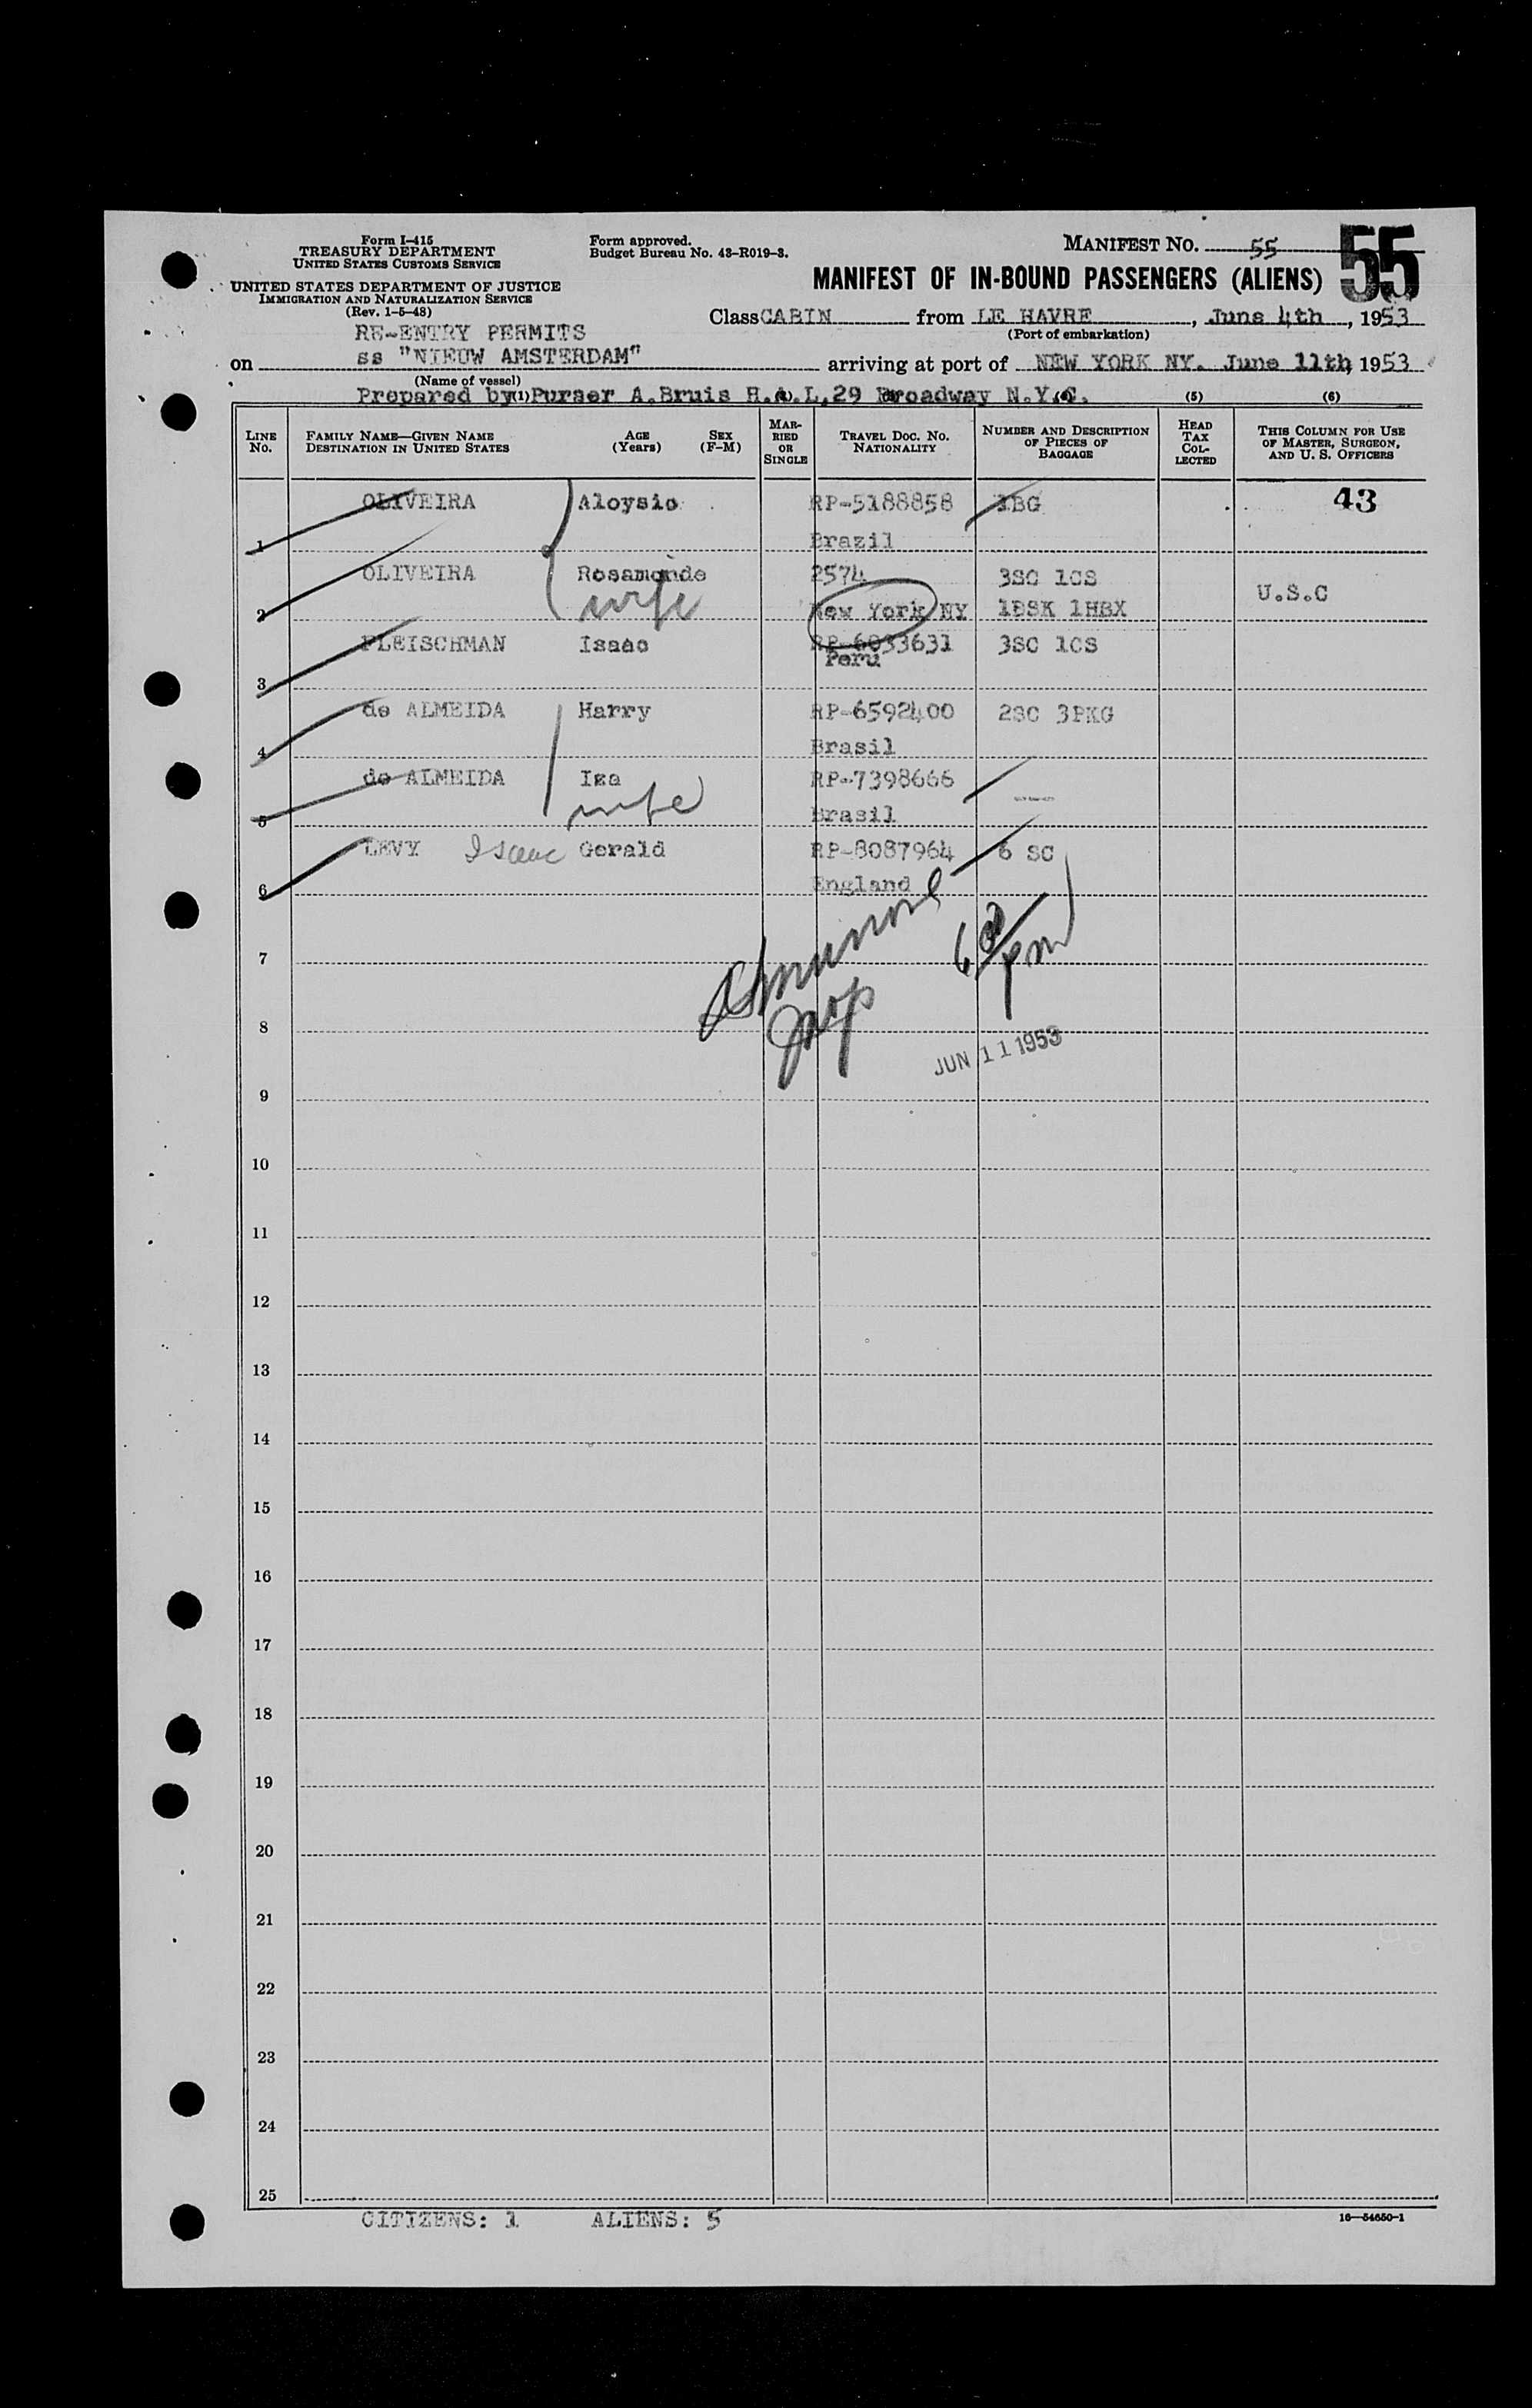 Form I-415
TREASURY DEPARTMENT
UNITED STATES CUSTOMS SERVICE
UNITED STATES DEPARTMENT OF JUSTICE
IMMIGRATION AND NATURALIZATION SERVICE
(Rev. 1-5-48)
Form approved.
Budget Bureau No. 43-R019-3.
MANIFEST NO. 55
55
MANIFEST OF IN-BOUND PASSENGERS (ALIENS)
Class CABIN from LE HAVRE, June 4th, 1953
(Port of embarkation)
RE-ENTRY PERMITS
on ss "NIEUW AMSTERDAM" arriving at port of NEW YORK NY. June 11th, 1953
(Name of vessel)
Prepared by Purser A.Bruis H.A.L.29 Broadway N.Y.C.
(1) (5) (6)
LINE No. FAMILY NAME—GIVEN NAME DESTINATION IN UNITED STATES AGE (Years) SEX (F-M) MARRIED OR SINGLE TRAVEL DOC. NO. NATIONALITY NUMBER AND DESCRIPTION OF PIECES OF BAGGAGE HEAD TAX COLLECTED THIS COLUMN FOR USE OF MASTER, SURGEON, AND U. S. OFFICERS
OLIVEIRA Aloysio RP-5188858 1BG 43
1 Brazil
OLIVEIRA Rosamonde 2574 3SC 1CS U.S.C
2 wife New York NY 1BSK 1HBX
FLEISCHMAN Isaac RP-6033631 3SC 1CS
3 Peru
de ALMEIDA Harry RP-6592400 2SC 3PKG
4 Brasil
de ALMEIDA Isa RP-7398666 ---
5 wife Brasil
LEVY Isaac Gerald RP-8087964 6 SC
6 England
7
6 00 pm
8
JUN 11 1953
9
10
11
12
13
14
15
16
17
18
19
20
21
22
23
24
25
CITIZENS: 1 ALIENS: 5
16—54650-1